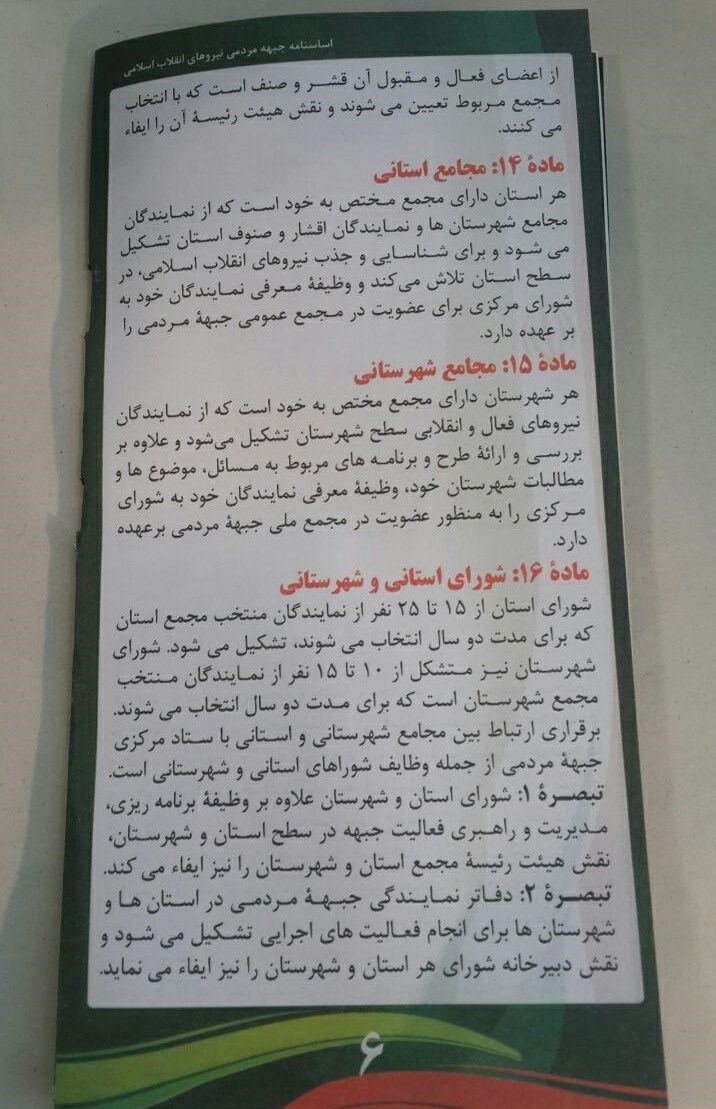 اساسنامه جبهه مردمی نیروهای انقلاب اسلامی
از اعضای فعال و مقبول آن قشر و صنف است که با انتخاب
مجمع مربوط تعیین می شوند و نقش هیئت رئیسهٔ آن را ایفاء
می کنند.
مادهٔ ۱۴: مجامع استانی
هر استان دارای مجمع مختص به خود است که از نمایندگان
مجامع شهرستان ها و نمایندگان اقشار و صنوف استان تشکیل
می شود و برای شناسایی و جذب نیروهای انقلاب اسلامی، در
سطح استان تلاش می‌کند و وظیفهٔ معرفی نمایندگان خود به
شورای مرکزی برای عضویت در مجمع عمومی جبههٔ مردمی را
بر عهده دارد.
مادهٔ ۱۵: مجامع شهرستانی
هر شهرستان دارای مجمع مختص به خود است که از نمایندگان
نیروهای فعال و انقلابی سطح شهرستان تشکیل می‌شود و علاوه بر
بررسی و ارائهٔ طرح و برنامه های مربوط به مسائل، موضوع ها و
مطالبات شهرستان خود، وظیفهٔ معرفی نمایندگان خود به شورای
مرکزی را به منظور عضویت در مجمع ملی جبههٔ مردمی برعهده
دارد.
مادهٔ ۱۶: شورای استانی و شهرستانی
شورای استان از ۱۵ تا ۲۵ نفر از نمایندگان منتخب مجمع استان
که برای مدت دو سال انتخاب می شوند، تشکیل می شود. شورای
شهرستان نیز متشکل از ۱۰ تا ۱۵ نفر از نمایندگان منتخب
مجمع شهرستان است که برای مدت دو سال انتخاب می شوند.
برقراری ارتباط بین مجامع شهرستانی و استانی با ستاد مرکزی
جبههٔ مردمی از جمله وظایف شوراهای استانی و شهرستانی است.
تبصرهٔ ۱: شورای استان و شهرستان علاوه بر وظیفهٔ برنامه ریزی،
مدیریت و راهبری فعالیت جبهه در سطح استان و شهرستان،
نقش هیئت رئیسهٔ مجمع استان و شهرستان را نیز ایفاء می کند.
تبصرهٔ ۲: دفاتر نمایندگی جبههٔ مردمی در استان ها و
شهرستان ها برای انجام فعالیت های اجرایی تشکیل می شود و
نقش دبیرخانه شورای هر استان و شهرستان را نیز ایفاء می نماید.
۶